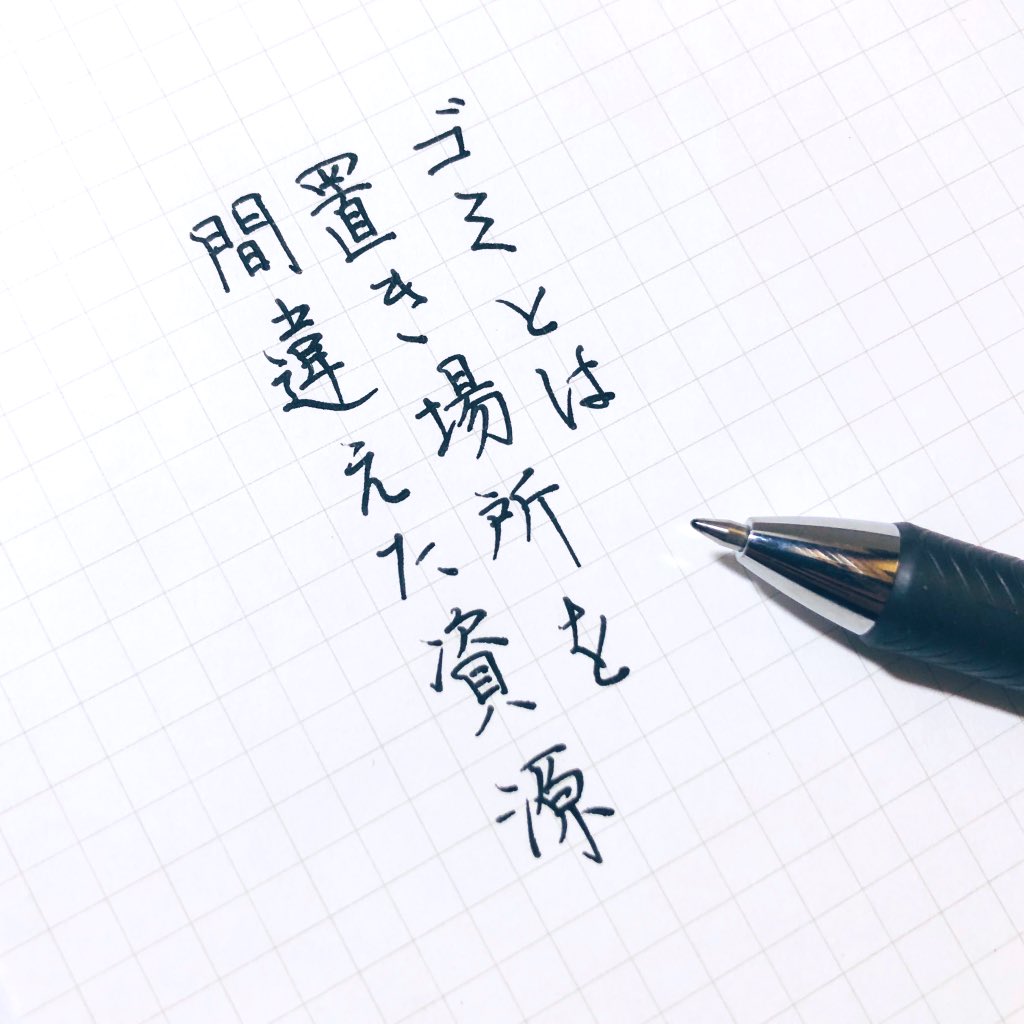 ゴミとは
置き場所を
間違えた資源